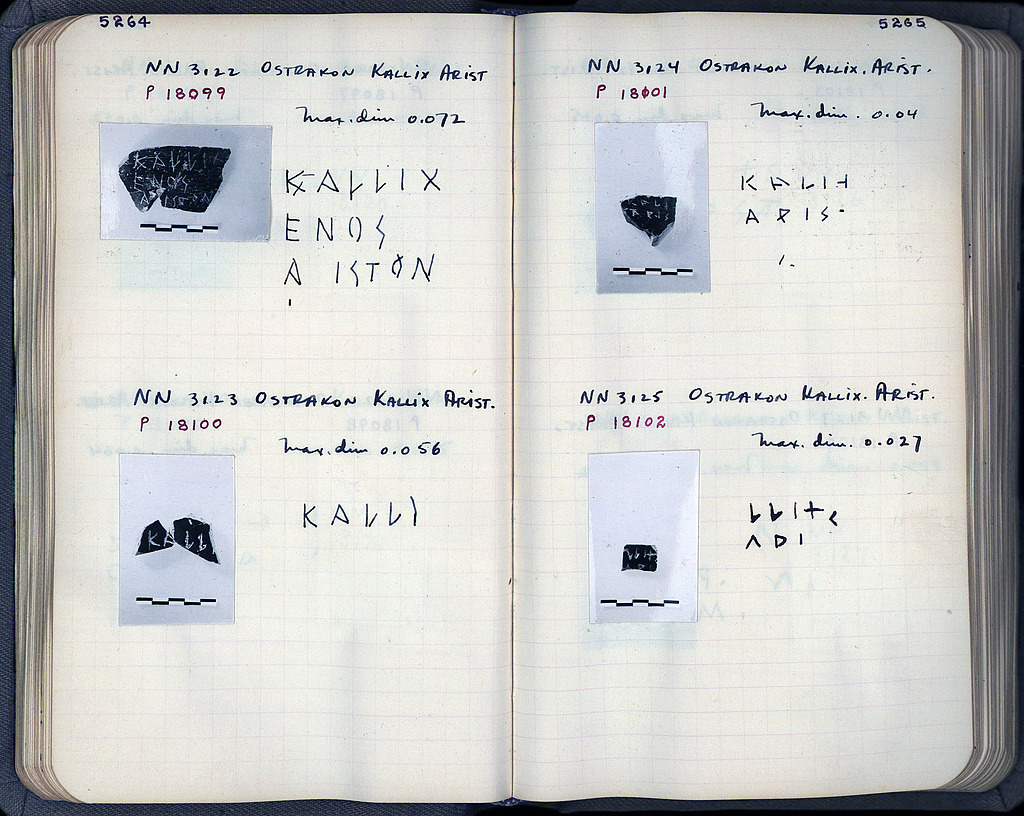 5264
NN 3122 OSTRAKON KALLIX ARIST
P 18099
Max. dim 0.072
KALLIX
ENOS
A ISTON
NN 3123 OSTRAKON KALLIX ARIST.
P 18100
Max. dim 0.056
KALLI
5265
NN 3124 OSTRAKON KALLIX. ARIST.
P 18001
Max. dim. 0.04
KALI+
ARIS
NN 3125 OSTRAKON KALLIX. ARIST.
P 18102
Max. dim. 0.027
LLI+
ARI